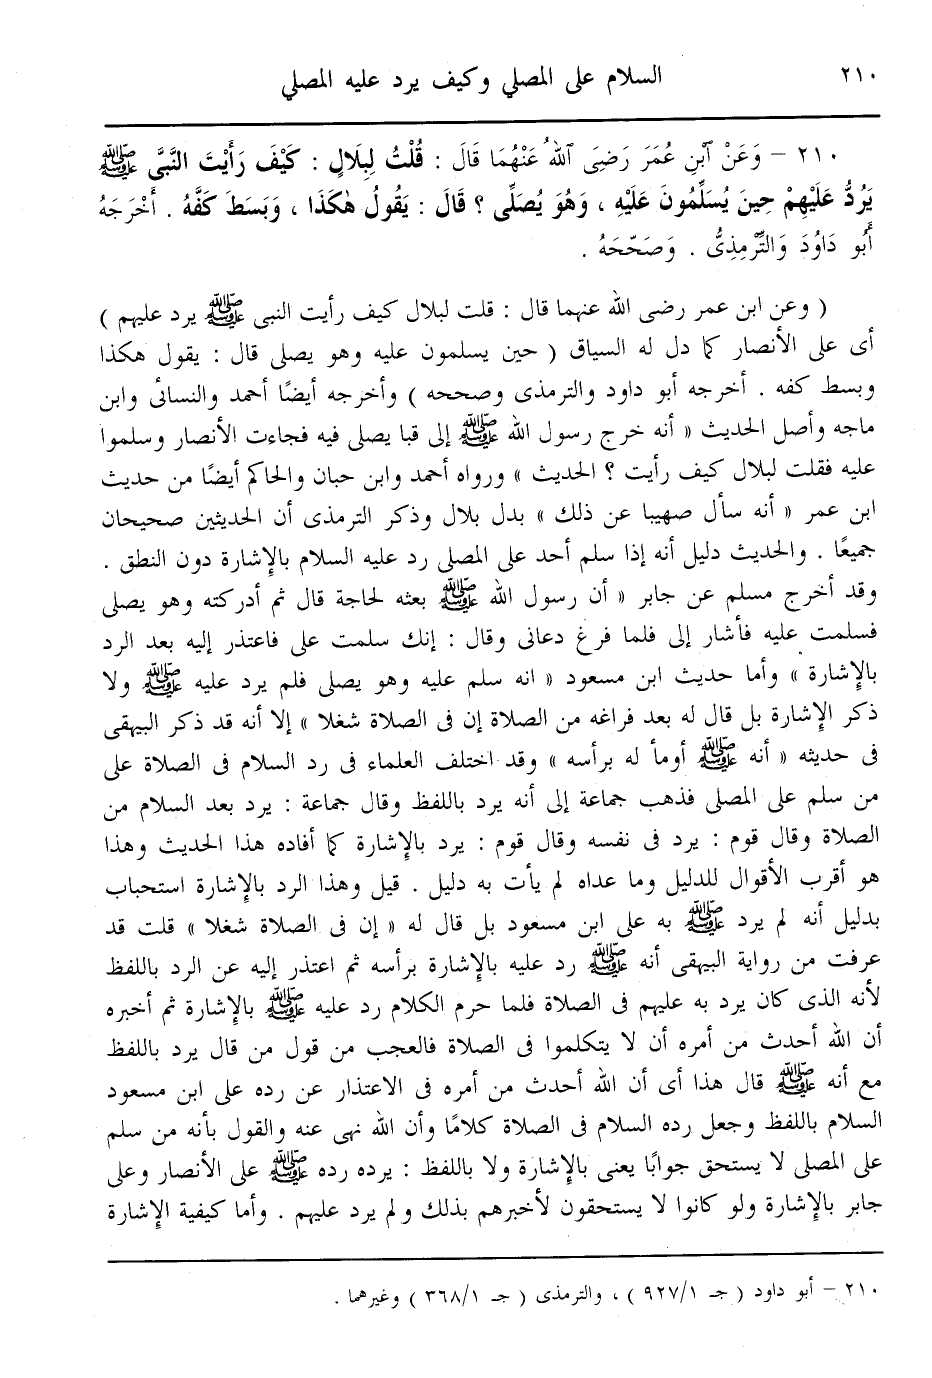 ٢١٠ السلام على المصلي وكيف يرد عليه المصلي
٢١٠ – وَعَنْ ٱبْنِ عُمَرَ رَضِىَ ٱللهُ عَنْهُمَا قَالَ : قُلْتُ لِبِلَالٍ : كَيْفَ رَأَيْتَ النَّبِىَّ ﷺ
يَرُدُّ عَلَيْهِمْ حِينَ يُسَلِّمُونَ عَلَيْهِ ، وَهُوَ يُصَلِّى ؟ قَالَ : يَقُولُ هٰكَذَا ، وَبَسَطَ كَفَّهُ . أَخْرَجَهُ
أَبُو دَاوُدَ وَالتِّرْمِذِىُّ . وَصَحّحَهُ .
( وعن ابن عمر رضى الله عنهما قال : قلت لبلال كيف رأيت النبى ﷺ يرد عليهم )
أى على الأنصار كما دل له السياق ( حين يسلمون عليه وهو يصلى قال : يقول هكذا
وبسط كفه . أخرجه أبو داود والترمذى وصححه ) وأخرجه أيضًا أحمد والنسائى وابن
ماجه وأصل الحديث « أنه خرج رسول الله ﷺ إلى قبا يصلى فيه فجاءت الأنصار وسلموا
عليه فقلت لبلال كيف رأيت ؟ الحديث » ورواه أحمد وابن حبان والحاكم أيضًا من حديث
ابن عمر « أنه سأل صهيبا عن ذلك » بدل بلال وذكر الترمذى أن الحديثين صحيحان
جميعًا . والحديث دليل أنه إذا سلم أحد على المصلى رد عليه السلام بالإشارة دون النطق .
وقد أخرج مسلم عن جابر « أن رسول الله ﷺ بعثه لحاجة قال ثم أدركته وهو يصلى
فسلمت عليه فأشار إلى فلما فرغ دعانى وقال : إنك سلمت على فاعتذر إليه بعد الرد
بالإشارة » وأما حديث ابن مسعود « انه سلم عليه وهو يصلى فلم يرد عليه ﷺ ولا
ذكر الإشارة بل قال له بعد فراغه من الصلاة إن فى الصلاة شغلا » إلا أنه قد ذكر البيهقى
فى حديثه « أنه ﷺ أومأ له برأسه » وقد اختلف العلماء فى رد السلام فى الصلاة على
من سلم على المصلى فذهب جماعة إلى أنه يرد باللفظ وقال جماعة : يرد بعد السلام من
الصلاة وقال قوم : يرد فى نفسه وقال قوم : يرد بالإشارة كما أفاده هذا الحديث وهذا
هو أقرب الأقوال للدليل وما عداه لم يأت به دليل . قيل وهذا الرد بالإشارة استحباب
بدليل أنه لم يرد ﷺ به على ابن مسعود بل قال له « إن فى الصلاة شغلا » قلت قد
عرفت من رواية البيهقى أنه ﷺ رد عليه بالإشارة برأسه ثم اعتذر إليه عن الرد باللفظ
لأنه الذى كان يرد به عليهم فى الصلاة فلما حرم الكلام رد عليه ﷺ بالإشارة ثم أخبره
أن الله أحدث من أمره أن لا يتكلموا فى الصلاة فالعجب من قول من قال يرد باللفظ
مع أنه ﷺ قال هذا أى أن الله أحدث من أمره فى الاعتذار عن رده على ابن مسعود
السلام باللفظ وجعل رده السلام فى الصلاة كلامًا وأن الله نهى عنه والقول بأنه من سلم
على المصلى لا يستحق جوابًا يعنى بالإشارة ولا باللفظ : يرده رده ﷺ على الأنصار وعلى
جابر بالإشارة ولو كانوا لا يستحقون لأخبرهم بذلك ولم يرد عليهم . وأما كيفية الإشارة
٢١٠ – أبو داود ( جـ ٩٢٧/١ ) ، والترمذى ( جـ ٣٦٨/١ ) وغيرهما .